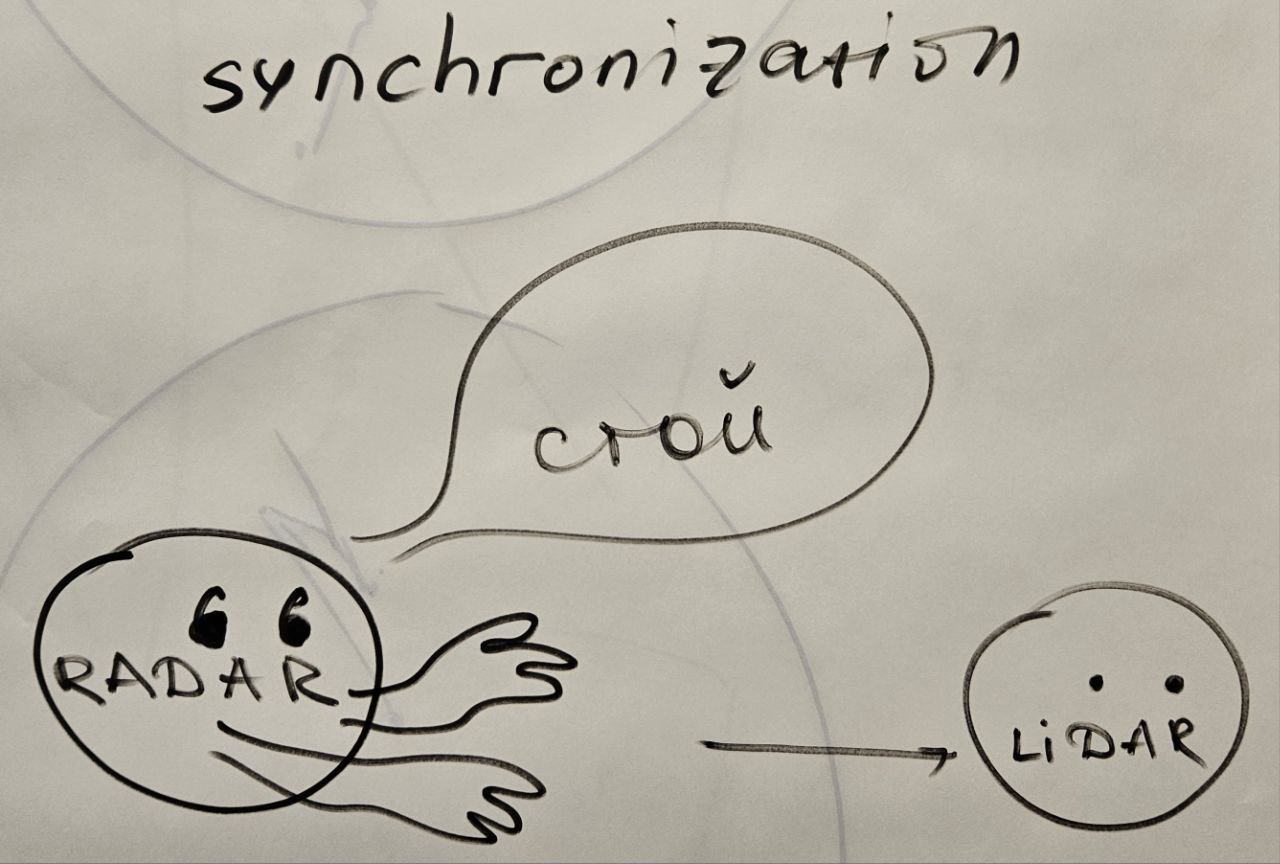 synchronization
стой
RADAR
LiDAR